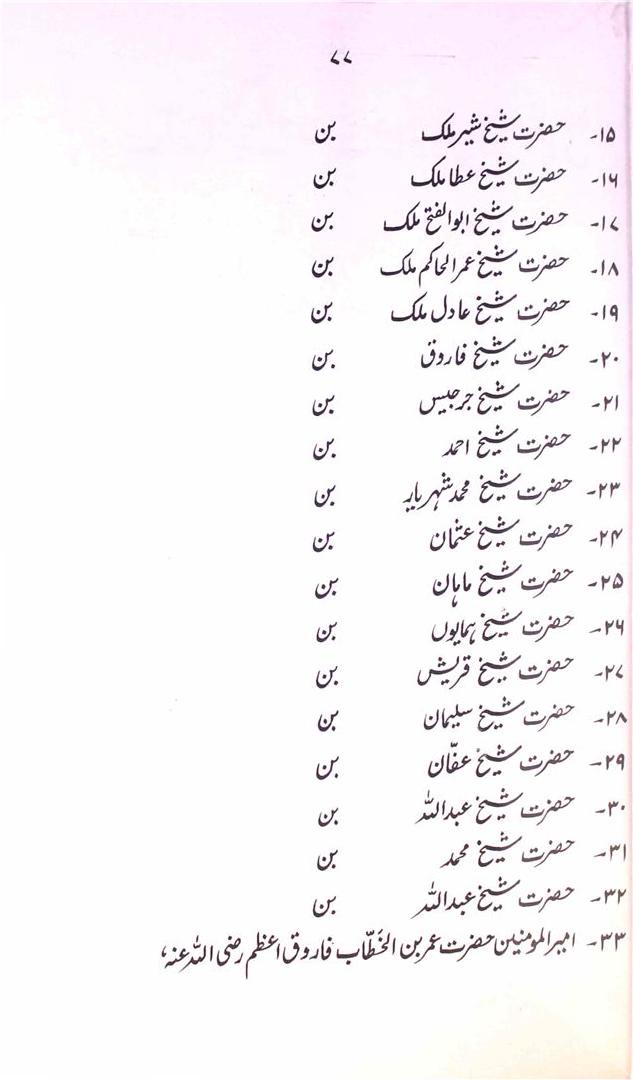 ۷۷
۱۵- حضرت شیخ شیر ملک بن
۱۶- حضرت شیخ عطا ملک بن
۱۷- حضرت شیخ ابوالفتح ملک بن
۱۸- حضرت شیخ عمر الحاکم ملک بن
۱۹- حضرت شیخ عادل ملک بن
۲۰- حضرت شیخ فاروق بن
۲۱- حضرت شیخ جرجیس بن
۲۲- حضرت شیخ احمد بن
۲۳- حضرت شیخ محمد شہریار بن
۲۴- حضرت شیخ عثمان بن
۲۵- حضرت شیخ ماہان بن
۲۶- حضرت شیخ ہمایوں بن
۲۷- حضرت شیخ قریش بن
۲۸- حضرت شیخ سلیمان بن
۲۹- حضرت شیخ عفّان بن
۳۰- حضرت شیخ عبداللہ بن
۳۱- حضرت شیخ محمد بن
۳۲- حضرت شیخ عبداللہ بن
۳۳- امیرالمومنین حضرت عمر بن الخَطّاب فاروق اعظم رضی اللہ عنہ،